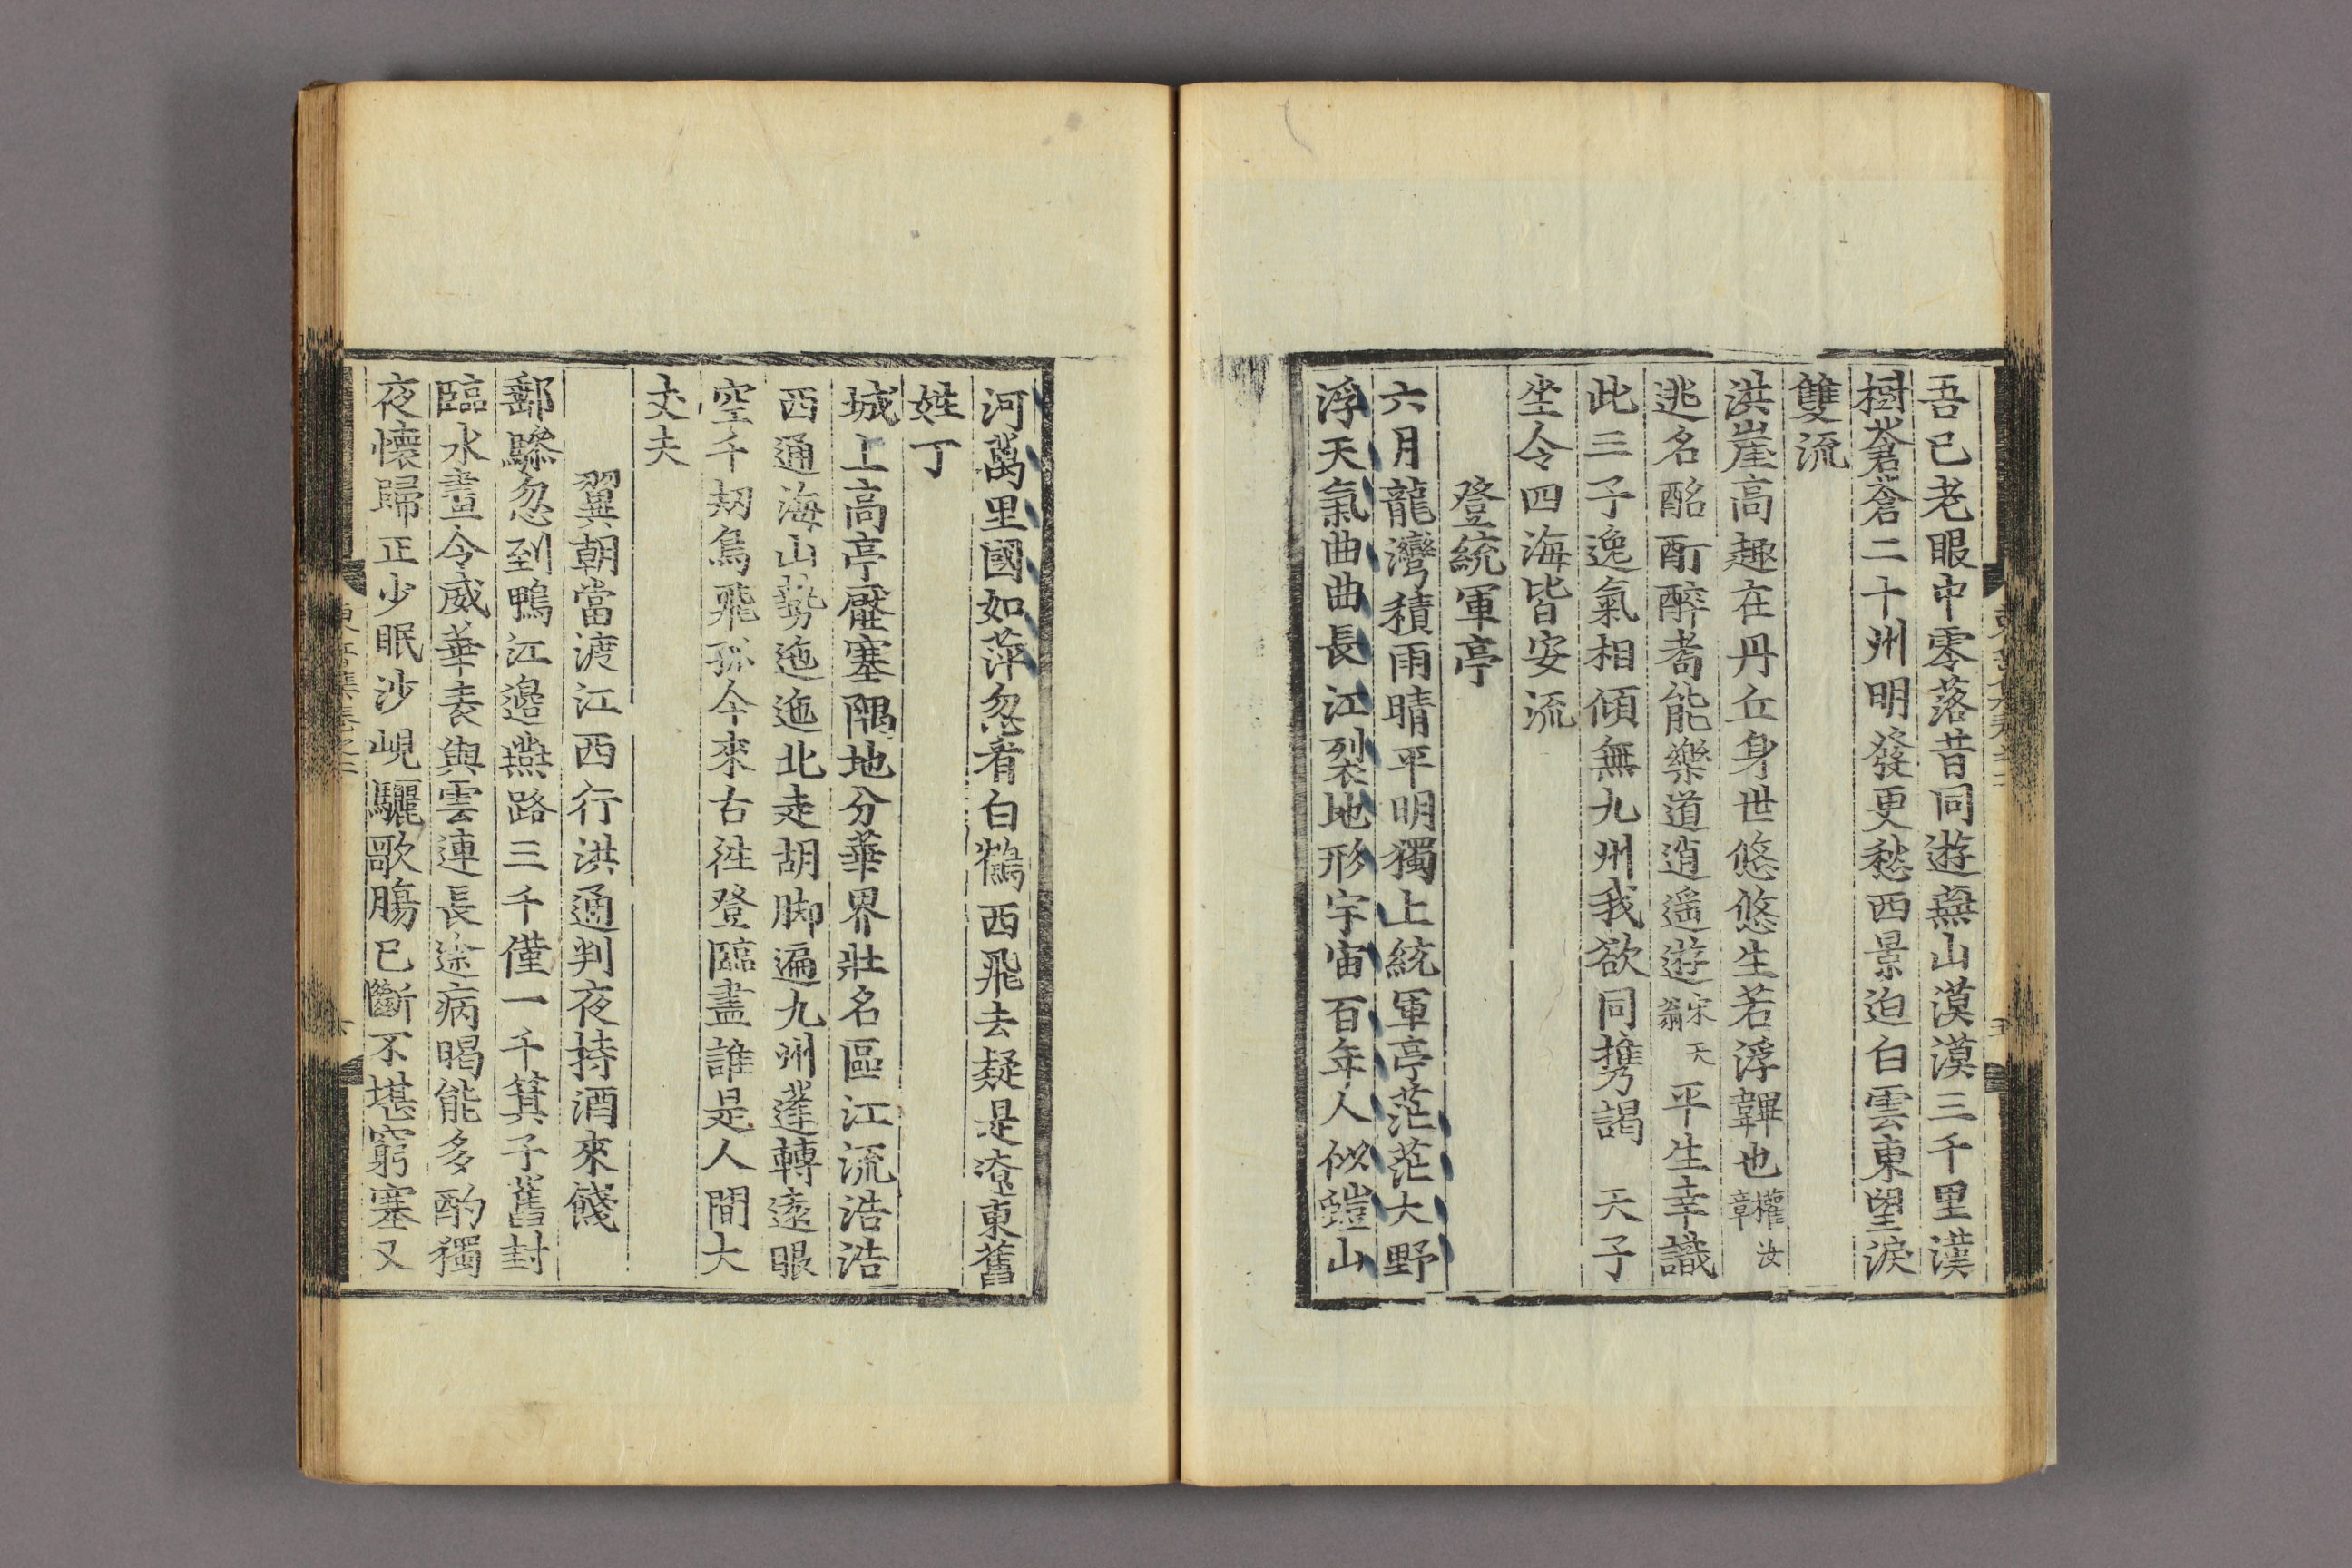 吾已老眼中零落昔同遊燕山漠漠三千里漢
樹蒼蒼二十州明發更愁西景迫白雲東望淚
雙流
洪崖高趣在丹丘身世悠悠生若浮韗也權汝章
逃名酩酊醉耆能樂道逍遙遊宋天翁平生幸識
此三子逸氣相傾無九州我欲同携謁 天子
坐令四海皆安流
登統軍亭
六月龍灣積雨晴平明獨上統軍亭茫茫大野
浮天氣曲曲長江裂地形宇宙百年人似螘山
河萬里國如萍忽看白鶴西飛去疑是遼東舊
姓丁
城上高亭壓塞隅地分華界壯名區江流浩浩
西通海山勢迤迤北走胡脚遍九州蓬轉遠眼
空千刼鳥飛孤今來古徃登臨盡誰是人間大
丈夫
翼朝當渡江西行洪通判夜持酒來餞
鄣驂忽到鴨江邉燕路三千僅一千箕子舊封
臨水盡令威華表與雲連長途病暍能多酌獨
夜懷歸正少眠沙峴驪歌膓已斷不堪窮塞又